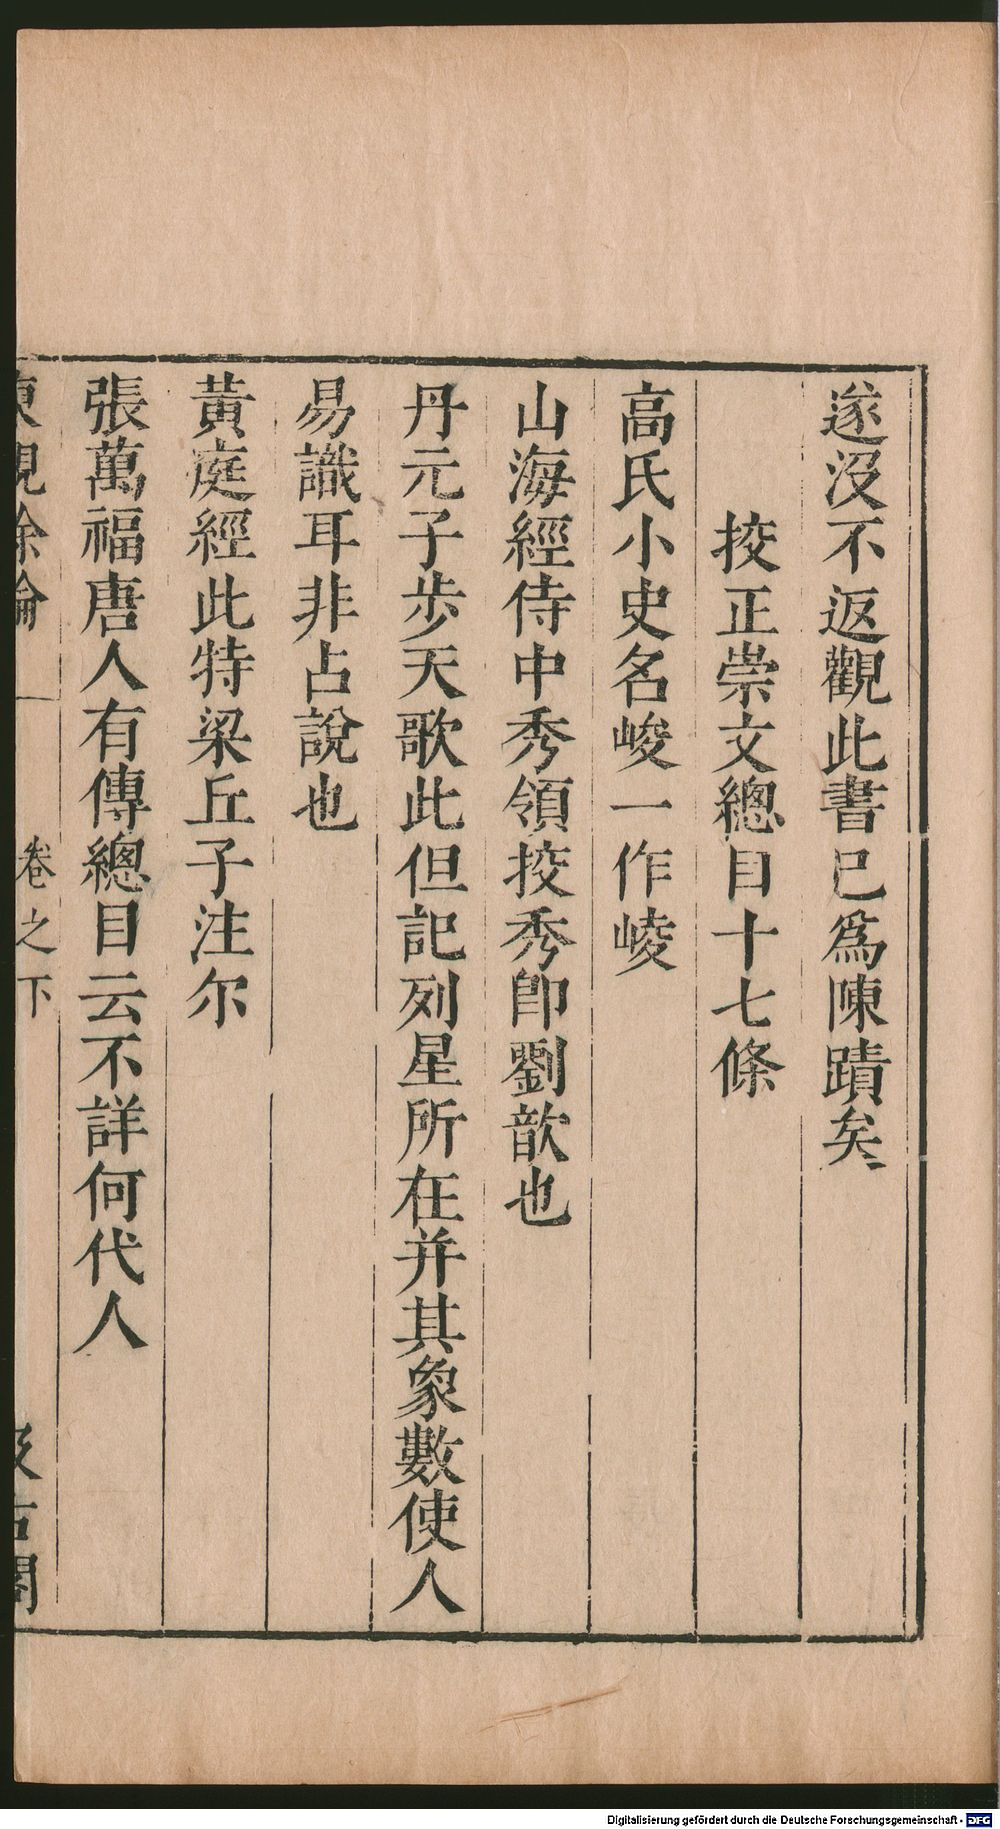 遂没不返觀此書已爲陳蹟矣
挍正崇文總目十七條
高氏小史名峻一作崚
山海經侍中秀領挍秀卽劉歆也
丹元子步天歌此但記列星所在并其象數使人
易識耳非占說也
黃庭經此特梁丘子注尔
張萬福唐人有傳總目云不詳何代人
東觀餘論 卷之下 汲古閣
Digitalisierung gefördert durch die Deutsche Forschungsgemeinschaft - DFG